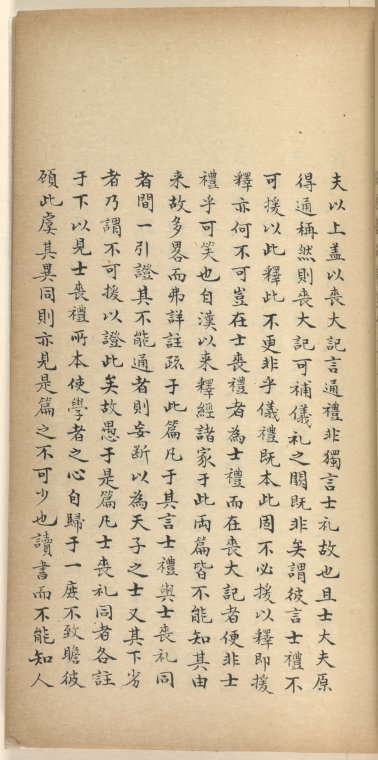 夫以上盖以喪大記言通禮非獨言士礼故也且士大夫原
得通稱然則喪大記可補儀礼之闕既非矣謂彼言士禮不
可援以此釋此不更非乎儀禮既本此固不必援以釋即援
釋亦何不可豈在士喪禮者為士禮而在喪大記者便非士
禮乎可笑也自漢以来釋經諸家于此両篇皆不能知其由
来故多畧而弗詳註疏于此篇凡于其言士禮與士喪礼同
者間一引證其不能通者則妄斷以為天子之士又其下劣
者乃謂不可援以證此矣故愚于是篇凡士喪礼同者各註
于下以見士喪禮所本使學者之心自歸于一庶不致瞻彼
頋此虞其異同則亦見是篇之不可少也讀書而不能知人